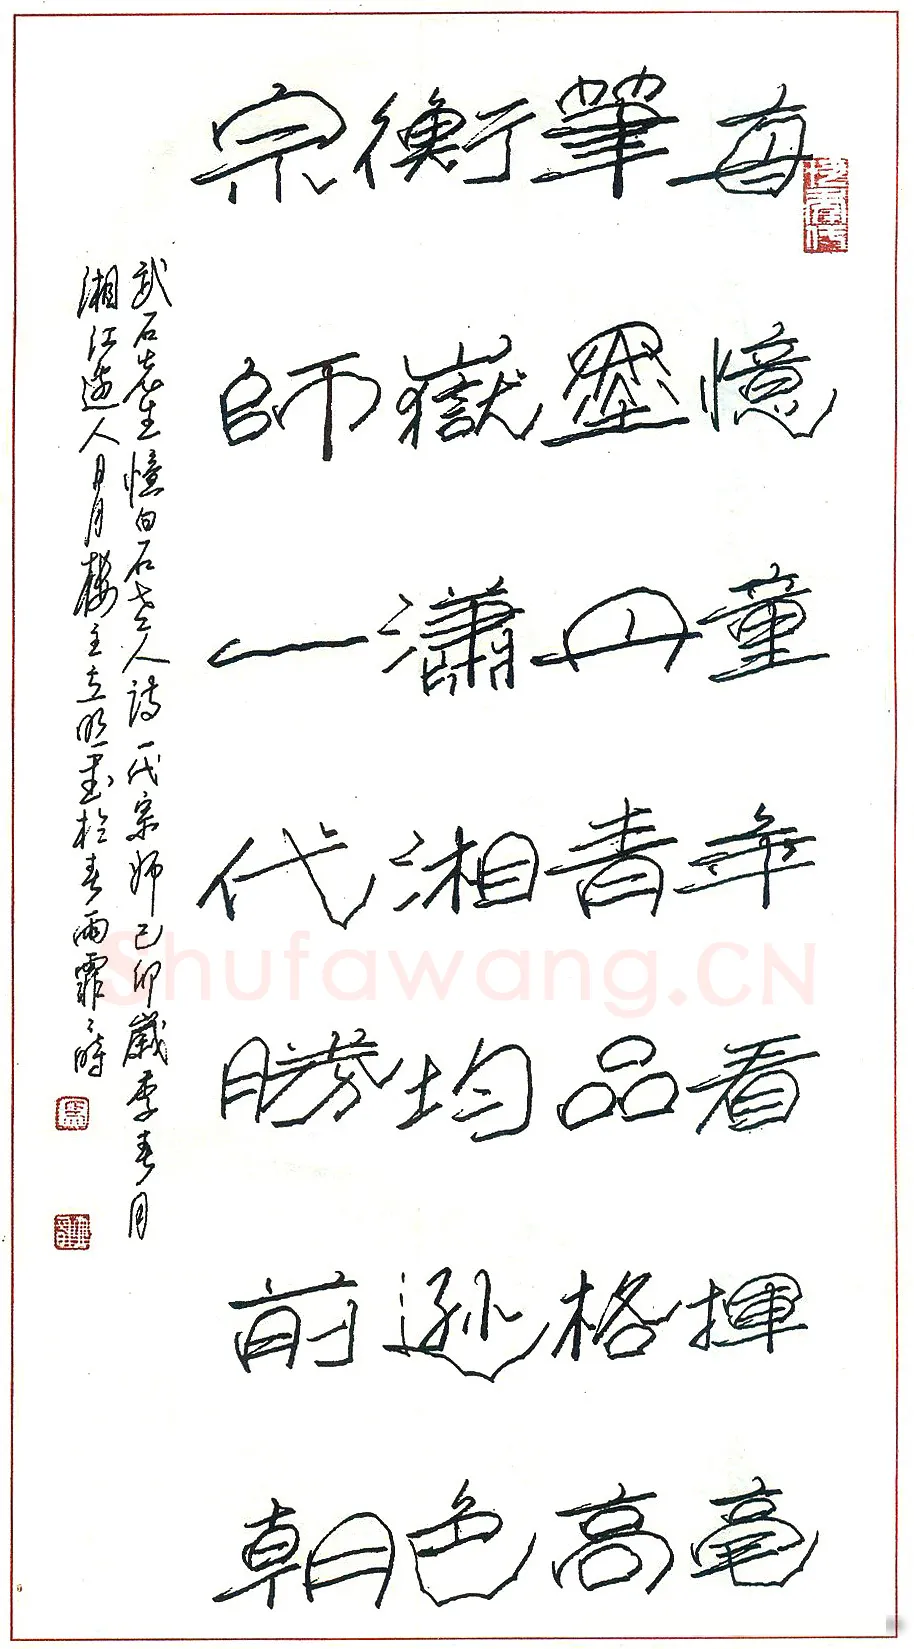 每憶童年看揮毫
筆墨丹青品格高
衡嶽瀟湘均遜色
宗師一代勝前朝
武石先生憶白石老人詩一代宗師己卯歲季春月
湘江邊人月樓主立明書於春雨霏〻時
Shufawang.CN